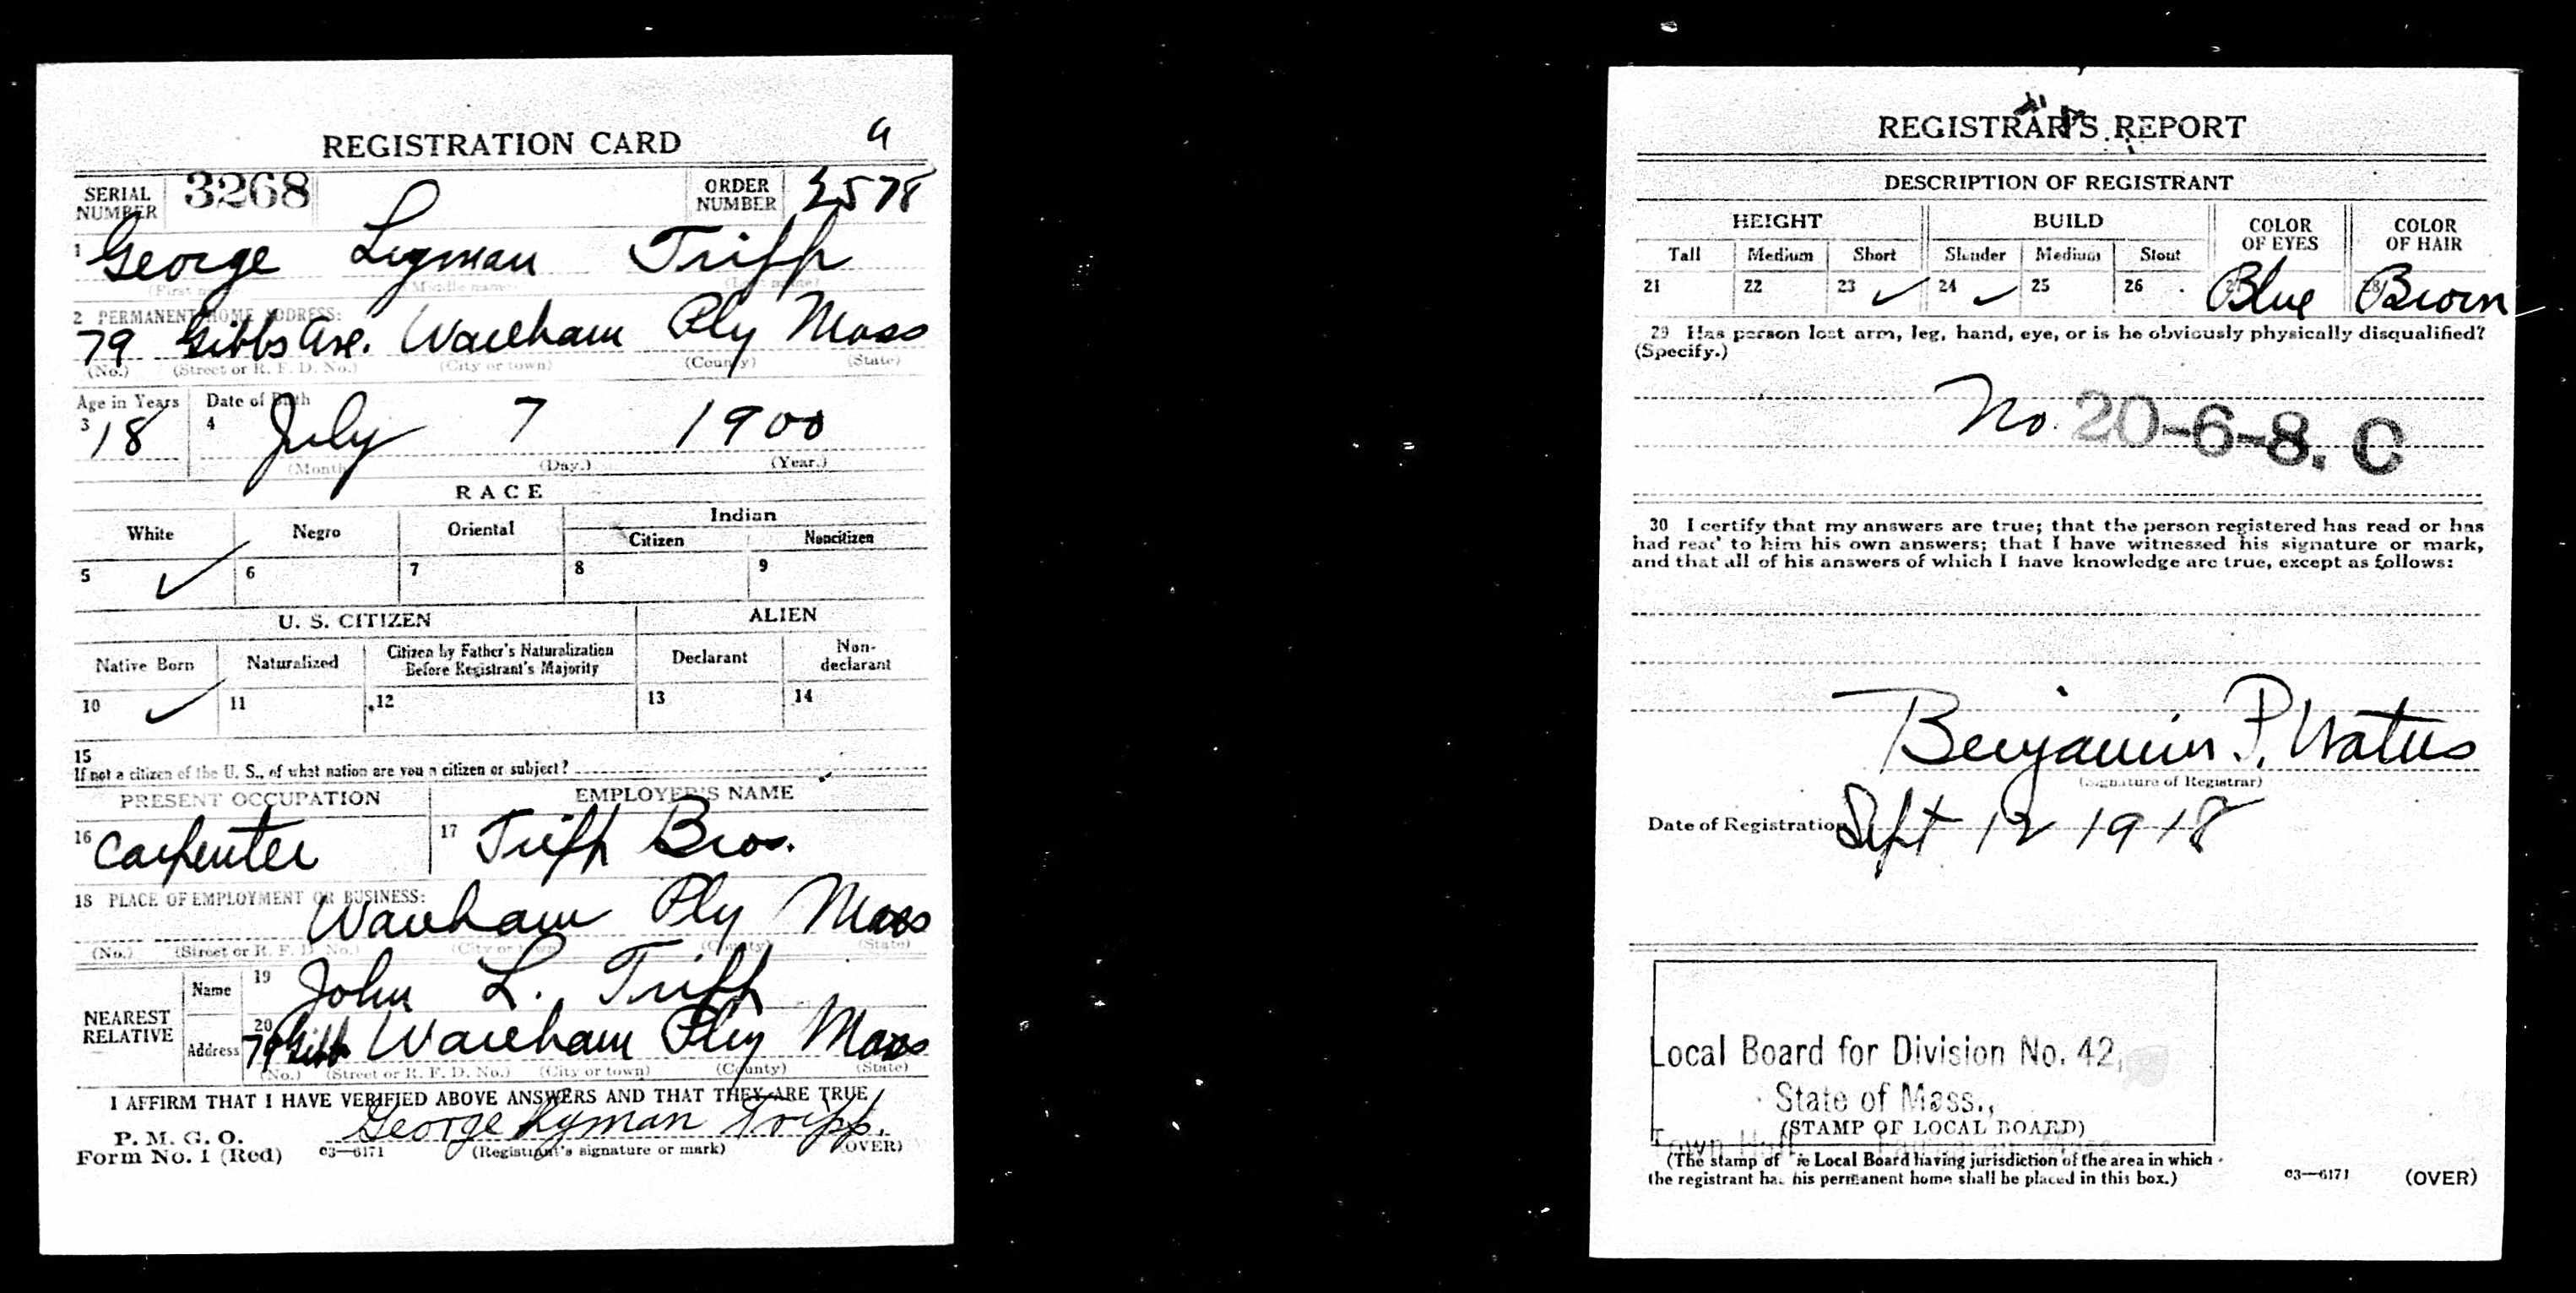 REGISTRATION CARD
SERIAL NUMBER 3268 ORDER NUMBER 2578
1 George Lyman Tripp
(First name) (Middle name) (Last name)
2 PERMANENT HOME ADDRESS:
79 Gibbs Ave. Wareham Ply Mass
(No.) (Street or R. F. D. No.) (City or town) (County) (State)
Age in Years Date of Birth
3 18 4 July 7 1900
(Month) (Day.) (Year.)
RACE
White Negro Oriental Indian
Citizen Noncitizen
5 ✓ 6 7 8 9
U. S. CITIZEN ALIEN
Native Born Naturalized Citizen by Father's Naturalization Before Registrant's Majority Declarant Non-declarant
10 ✓ 11 12 13 14
15
If not a citizen of the U. S., of what nation are you a citizen or subject?
PRESENT OCCUPATION EMPLOYER'S NAME
16 Carpenter 17 Tripp Bros.
18 PLACE OF EMPLOYMENT OR BUSINESS:
Wareham Ply Mass
(No.) (Street or R. F. D. No.) (City or town) (County) (State)
NEAREST RELATIVE
Name 19 John L. Tripp
Address 20 79 Gibbs Wareham Ply Mass
(No.) (Street or R. F. D. No.) (City or town) (County) (State)
I AFFIRM THAT I HAVE VERIFIED ABOVE ANSWERS AND THAT THEY ARE TRUE
George Lyman Tripp.
P. M. G. O.
Form No. 1 (Red) 03—6171 (Registrant's signature or mark) (OVER)
REGISTRAR'S REPORT
DESCRIPTION OF REGISTRANT
HEIGHT BUILD COLOR OF EYES COLOR OF HAIR
Tall Medium Short Slender Medium Stout
21 22 23 ✓ 24 ✓ 25 26 27 Blue 28 Brown
29 Has person lost arm, leg, hand, eye, or is he obviously physically disqualified?
(Specify.)
No. 20-6-8. C
30 I certify that my answers are true; that the person registered has read or has
had read to him his own answers; that I have witnessed his signature or mark,
and that all of his answers of which I have knowledge are true, except as follows:
Benjamin P. Waters
(Signature of Registrar)
Date of Registration Sept 12 1918
Local Board for Division No. 42,
State of Mass.,
(STAMP OF LOCAL BOARD)
Town Hall
(The stamp of the Local Board having jurisdiction of the area in which
the registrant has his permanent home shall be placed in this box.)
03—6171 (OVER)